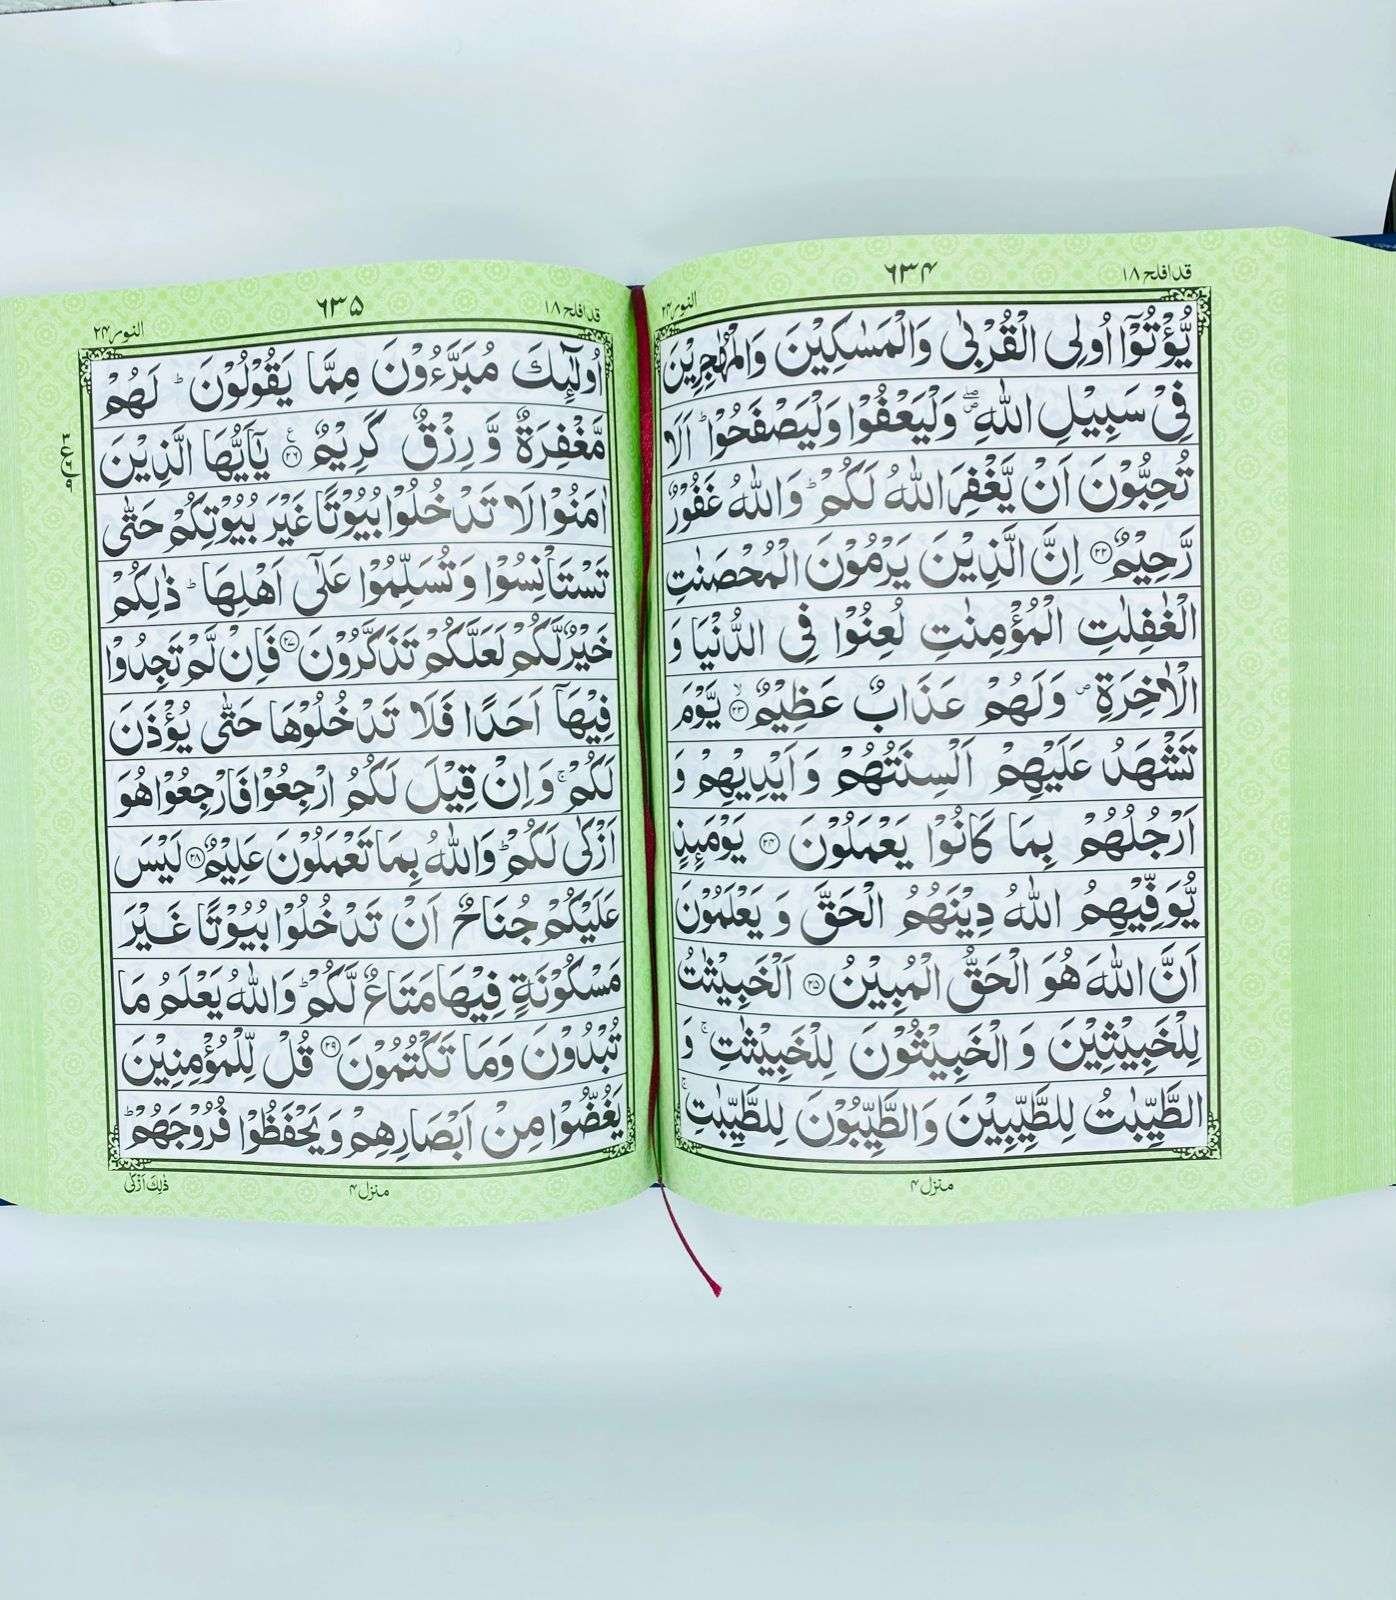 قد افلح ۱۸
۶۳۴
النور ۲۴
يُّؤْتُوْۤا اُولِى الْقُرْبٰى وَالْمَسٰكِيْنَ وَالْمُهٰجِرِيْنَ
فِىْ سَبِيْلِ اللّٰهِ ۖ وَلْيَعْفُوْا وَلْيَصْفَحُوْا ؕ اَلَا
تُحِبُّوْنَ اَنْ يَّغْفِرَ اللّٰهُ لَكُمْ ؕ وَاللّٰهُ غَفُوْرٌ
رَّحِيْمٌ ۟۲۲ اِنَّ الَّذِيْنَ يَرْمُوْنَ الْمُحْصَنٰتِ
الْغٰفِلٰتِ الْمُؤْمِنٰتِ لُعِنُوْا فِى الدُّنْيَا وَ
الْاٰخِرَةِ ۪ وَلَهُمْ عَذَابٌ عَظِيْمٌ ۙ۲۳ يَّوْمَ
تَشْهَدُ عَلَيْهِمْ اَلْسِنَتُهُمْ وَاَيْدِيْهِمْ وَ
اَرْجُلُهُمْ بِمَا كَانُوْا يَعْمَلُوْنَ ۲۴ يَوْمَئِذٍ
يُّوَفِّيْهِمُ اللّٰهُ دِيْنَهُمُ الْحَقَّ وَ يَعْلَمُوْنَ
اَنَّ اللّٰهَ هُوَ الْحَقُّ الْمُبِيْنُ ۲۵ اَلْخَبِيْثٰتُ
لِلْخَبِيْثِيْنَ وَالْخَبِيْثُوْنَ لِلْخَبِيْثٰتِ ۚ وَ
الطَّيِّبٰتُ لِلطَّيِّبِيْنَ وَالطَّيِّبُوْنَ لِلطَّيِّبٰتِ ۚ
منزل ۴
قد افلح ۱۸
۶۳۵
النور ۲۴
اُولٰٓئِكَ مُبَرَّءُوْنَ مِمَّا يَقُوْلُوْنَ ؕ لَهُمْ
مَّغْفِرَةٌ وَّ رِزْقٌ كَرِيْمٌ ۲۶ ع يٰۤاَيُّهَا الَّذِيْنَ
اٰمَنُوْا لَا تَدْخُلُوْا بُيُوْتًا غَيْرَ بُيُوْتِكُمْ حَتّٰى
تَسْتَاْنِسُوْا وَتُسَلِّمُوْا عَلٰٓى اَهْلِهَا ؕ ذٰلِكُمْ
خَيْرٌ لَّكُمْ لَعَلَّكُمْ تَذَكَّرُوْنَ ۲۷ فَاِنْ لَّمْ تَجِدُوْا
فِيْهَاۤ اَحَدًا فَلَا تَدْخُلُوْهَا حَتّٰى يُؤْذَنَ
لَكُمْ ۚ وَاِنْ قِيْلَ لَكُمُ ارْجِعُوْا فَارْجِعُوْا هُوَ
اَزْكٰى لَكُمْ ؕ وَاللّٰهُ بِمَا تَعْمَلُوْنَ عَلِيْمٌ ۲۸ لَيْسَ
عَلَيْكُمْ جُنَاحٌ اَنْ تَدْخُلُوْا بُيُوْتًا غَيْرَ
مَسْكُوْنَةٍ فِيْهَا مَتَاعٌ لَّكُمْ ؕ وَاللّٰهُ يَعْلَمُ مَا
تُبْدُوْنَ وَمَا تَكْتُمُوْنَ ۲۹ قُلْ لِّلْمُؤْمِنِيْنَ
يَغُضُّوْا مِنْ اَبْصَارِهِمْ وَيَحْفَظُوْا فُرُوْجَهُمْ ؕ
منزل ۴
ذٰلِكَ اَزْكٰى